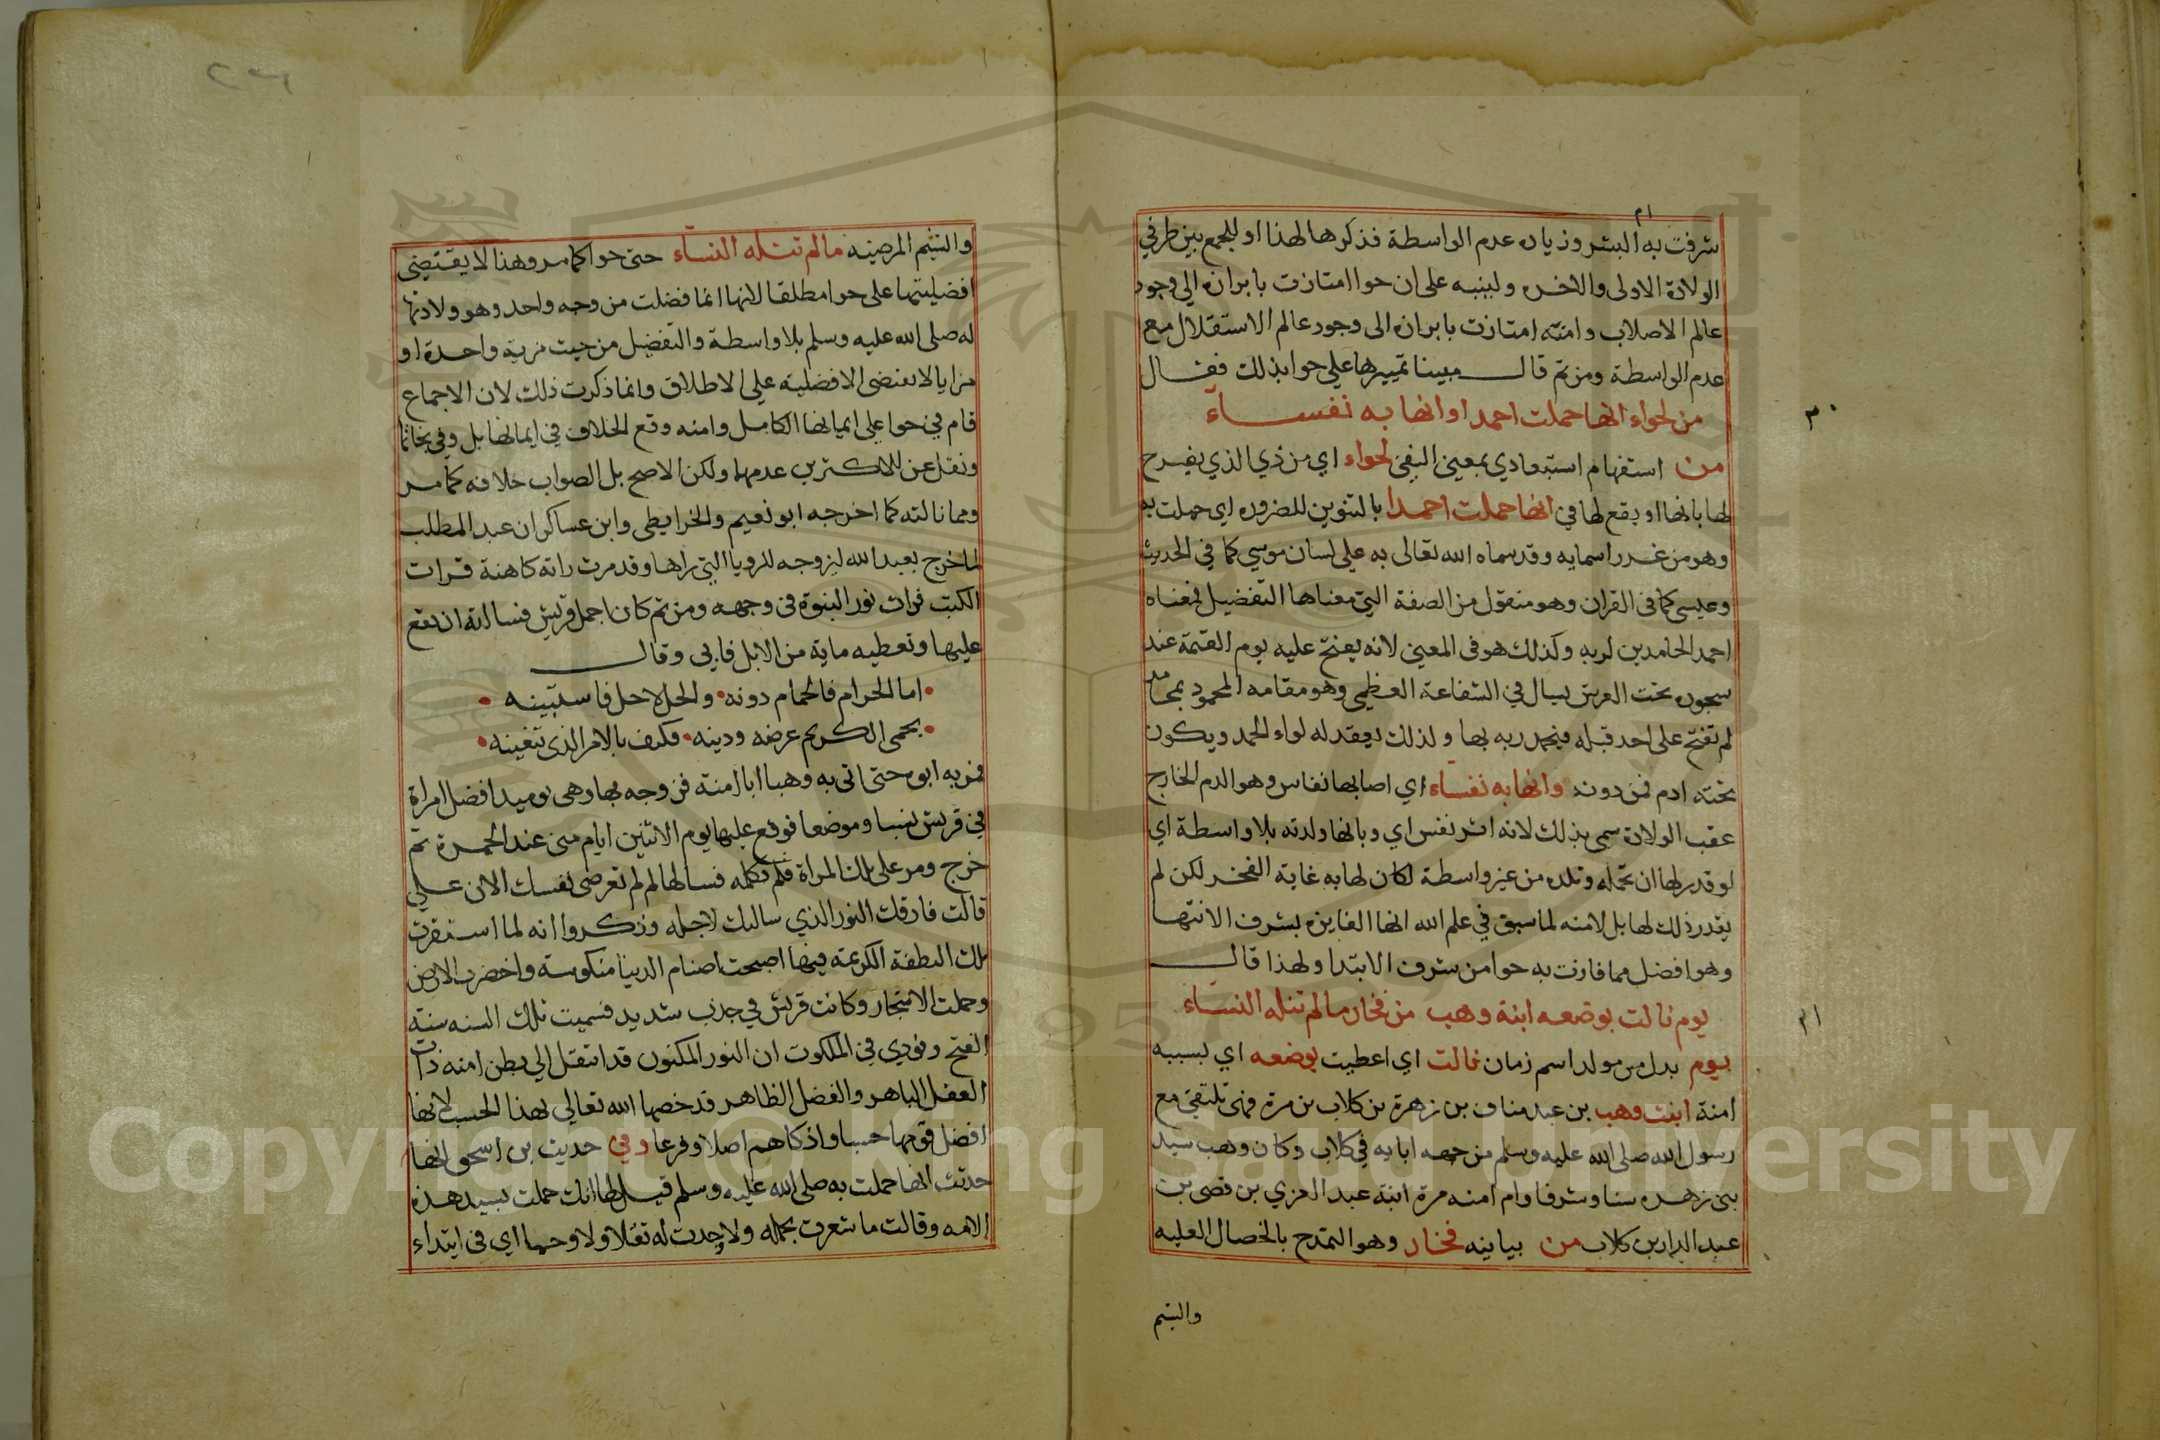 شرفت به ام البشر وزيان عدم الواسطة فذكرها لهذا او للجمع بين طرفي
الولادة الاولى والاخره ولينبه على ان حوا امتازت بابرازه الى وجود
عالم الاصلاب وامنه امتازت بابرازه الى وجود عالم الاستقلال مع
عدم الواسطة ومن ثم قال مبينا تمييزها على حوا بذلك فقال
٣٠
من لحواء انها حملت احمد او انها به نفساء
من استفهام استبعادي بمعنى النفي لحواء اي من ذي الذي يفرح
لها بانها او يقع لها في انها حملت احمدا بالتنوين للضروره اي حملت به
وهو من غرر اسمايه وقد سماه الله تعالى به على لسان موسى كما في الحديث
وعيسى كما في القران وهو منقول من الصفة التي معناها التفضيل فمعناه
احمد الحامدين لربه وكذلك هو في المعنى لانه يفتح عليه يوم القيمة عند
سجوده تحت العرش يسال في الشفاعة العظمى وهو مقامه المحمود بمحامد
لم تفتح على احد قبله فيحمد ربه بها ولذلك يعقد له لواء الحمد ويكون
تحته ادم فمن دونه وانها به نفساء اي اصابها نفاس وهو الدم الخارج
عقب الولادة سمي بذلك لانه اثر نفس اي وبانها ولدته بلا واسطة اي
لو قدر لها ان تحمله وتلده من غير واسطة لكان لها به غاية الفخر لكن لم
يقدر ذلك لها بل لامنه لما سبق في علم الله انها الفايزه بشرف الانتها
وهو افضل مما فازت به حوا من شرف الابتدا ولهذا قال
٣١
يوم نالت بوضعه ابنة وهب من فخار مالم تنله النساء
يوم بدل من مولد اسم زمان نالت اي اعطيت بوضعه اي بسببه
امنة ابنت وهب بن عبد مناف بن زهرة بن كلاب بن مرة فهى تلتقي مع
رسول الله صلى الله عليه وسلم من جهه ابايه في كلاب وكان وهب سيد
بنى زهره سنا وشرفا وام امنه مرة ابنة عبد العزي بن قصى بن
عبد الدار بن كلاب من بيانيه فخار وهو التمدح بالخصال العليه
والشيم
والشيم المرضيه مالم تنله النساء حتى حوا كما مر وهذا لا يقتضى
افضليتها على حوا مطلقا لانها انما فضلت من وجه واحد وهو ولادتها
له صلى الله عليه وسلم بلا واسطة والتفضيل من حيث مزية واحدة او
مزايا لا يقتضى الافضلية على الاطلاق وانما ذكرت ذلك لان الاجماع
قام في حوا على ايمانها الكامل وامنه وقع الخلاف في ايمانها بل وفي نجاتها
ونقل عن الاكثرين عدمها ولكن الاصح بل الصواب خلافه كما مر
ومما نالته كما اخرجه ابو نعيم والخرايطى وابن عساكر ان عبد المطلب
لما خرج بعبد الله ليزوجه للرويا التي راها وقد مرت راته كاهنة قرات
الكتب فرات نور النبوة في وجهه ومن ثم كان اجمل قريش فسالته ان يقع
عليها وتعطيه ماية من الابل فابى وقال
اما الحرام فالحمام دونه والحل لا حل فاستبينه
يحمى الكريم عرضه ودينه فكيف بالامر الذي تبغينه
فمر به ابوه حتى اتى به وهبا ابا امنة فزوجه بها وهى يوميد افضل امراة
في قريش نسبا وموضعا فوقع عليها يوم الاثنين ايام منى عند الجمرة ثم
خرج ومر على تلك المراة فلم تكلمه فسالها لم لم تعرضي نفسك الان علي
قالت فارقك النور الذي سالتك لاجله وذكروا انه لما استقرت
تلك النطفة الكريمة فيها اصبحت اصنام الدنيا منكوسة واخضرت الارض
وحملت الاشجار وكانت قريش في جدب شديد فسميت تلك السنه سنة
الفتح ونودي في الملكوت ان النور المكنون قد انتقل الى بطن امنه ذات
العقل الباهر والفضل الظاهر قد خصها الله تعالى بهذا الحبيب لانها
افضل قومها حسبا واذكاهم اصلا وفرعا وفي حديث بن اسحق انها
حدثت انها حملت به صلى الله عليه وسلم قيل لها انك حملت بسيد هذه
الامه وقالت ما شعرت بحمله ولا وجدت له ثقلا ولا وحما اي في ابتداء